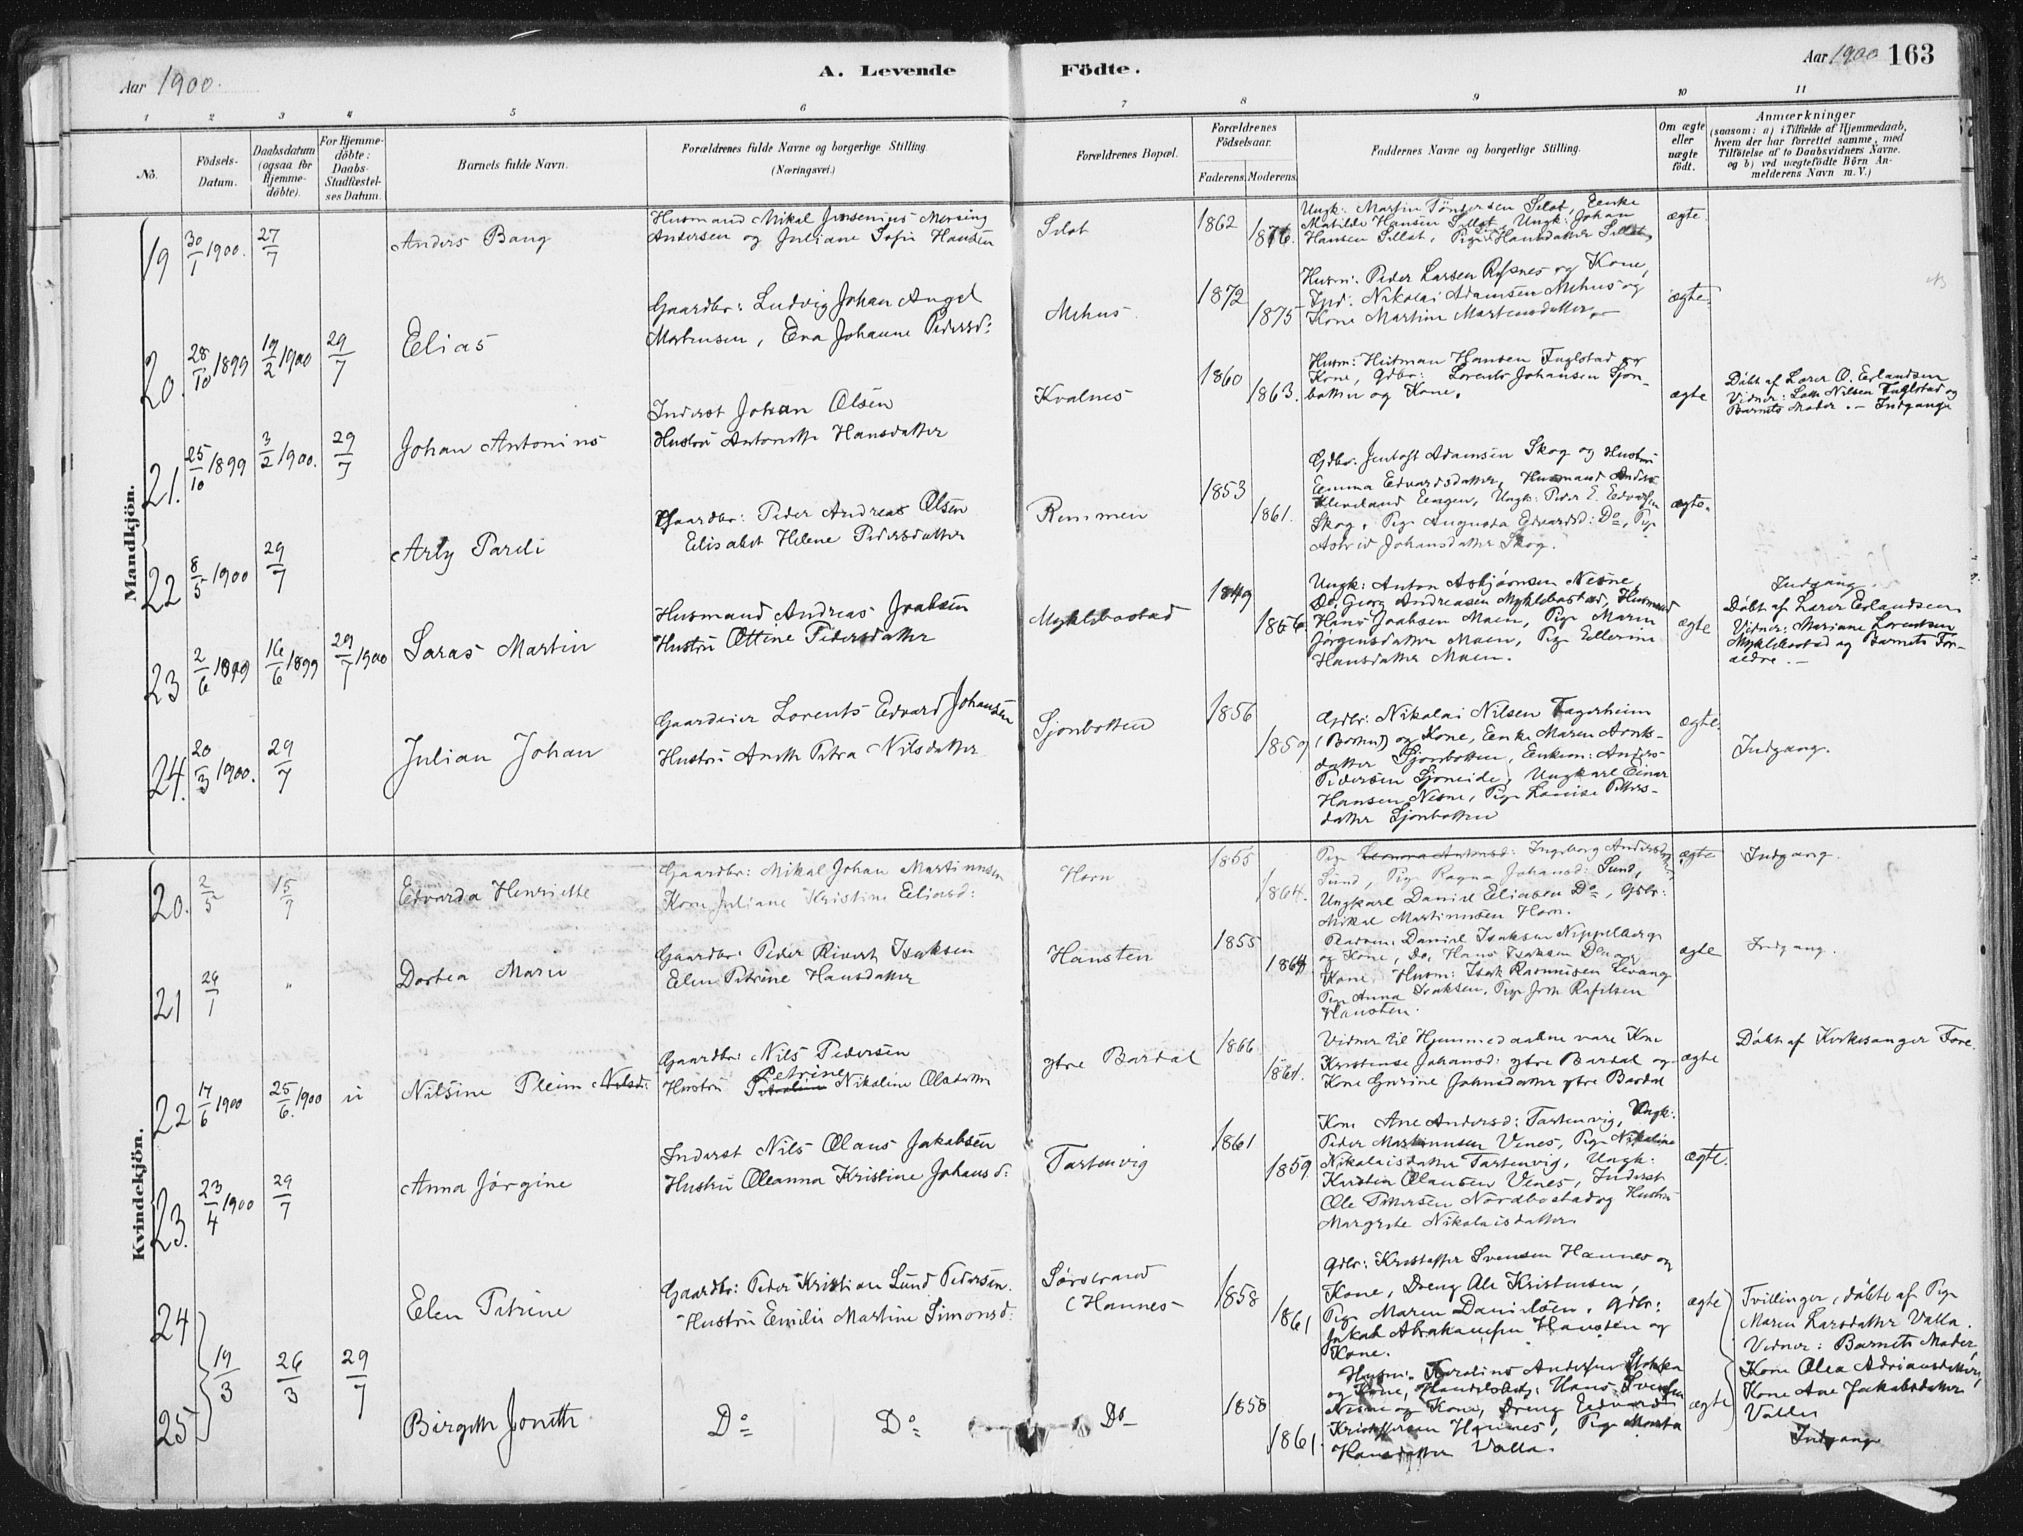 Aar 1900.
A. Levende Födte.
Aar 1900 163
1 2 3 4 5 6 7 8 9 10 11
No.
Födsels-Datum.
Daabsdatum (ogsaa for Hjemme-döbte).
For Hjemme-döbte: Daabs-Stadfæstel-ses Datum.
Barnets fulde Navn.
Forældrenes fulde Navne og borgerlige Stilling.
(Næringsvei.)
Forældrenes Bopæl.
Forældrenes Födselsaar.
Faderens. Moderens.
Faddernes Navne og borgerlige Stilling.
Om ægte eller uægte födt.
Anmærkninger
(saasom: a) i Tilfælde af Hjemmedaab,
hvem der har forrettet samme, med
Tilföielse af to Daabsvidners Navne,
og b) ved uægtefödte Börn An-
melderens Navn m. V.)
Mandkjön.
19 30/1 1900. 27/7 Anders Bang
Husmand Mikal Jensenius Mersing
Andersen og Juliane Sofie Hansen
Selat 1862 1876.
Ungk: Martin Töndersen Selat, Enke
Matilde Hansen Sellat, Ungk: Johan
Hansen Sellat, Pige Hansdatter Sellat
ægte.
20. 28/10 1899 19/2 1900 29/7 Elias
Gaardbr: Ludvig Johan Angel
Mortensen, Eva Johanne Pedersd:
Mehus. 1872 1875
Husm: Peder Larsen Refsnes og Kone,
Ind. Nikolai Adamsen Mehus og
Kone Martine Martensdatter.
ægte.
21. 25/10 1899 3/2 1900. 29/7 Johan Antonius
Inderst Johan Olsen
Hustru Antonette Hansdatter
Kvalnes 1860 1863.
Husm: Hitman Hansen Fuglstad og
Kone, Gdbr: Lorents Johansen Sjon-
botten og Kone.
ægte
Döbt af Lærer O. Erlandsen
Vidner: Lotte Nilsen Fuglstad og
Barnets Moder. — Indgang
22 8/5 1900 29/7 Arly Pareli
Gaardbr: Peder Andreas Olsen
Elisabet Helene Pedersdatter
Remmen 1853 1861.
Gdbr: Jentoft Adamsen Skog og Hustru
Emma Edvardsdatter, Husmand Anders
Kleveland Engen, Ungk: Peder E. Edvardsen
Skog, Pige Augusta Edvardsd: Do, Pige
Astrid Johansdatter Skog.
ægte.
23 2/6 1899 16/6 1899 29/7 1900 Saras Martin
Husmand Andreas Joabsen
Hustru Ottine Pedersdatter
Myklebostad 1849 1856
Ungk: Anton Asbjörnsen Nesne,
Do. Georg Andreasen Myklebostad, Husmand
Hans Joabsen Moen, Pige Maren
Jörgensdatter Moen, Pige Ellerine
Hansdatter Moen.
ægte
Indgang
Döbt af Lærer Erlandsen
Vidner: Mariane Lorentsen
Myklebostad og Barnets For-
ældre. —
24. 20/3 1900. 29/7 Julian Johan
Gaardeier Lorents Edvard Johansen
Hustru Anette Petra Nilsdatter
Sjonbotten 1856 1859
Gdbr: Nikolai Nilsen Fagerheim
(Botten) og Kone, Enke Maren Arnts-
datter Sjonbotten, Enkem: Anders
Pedersen Sjoneide, Ungkarl Einar
Hansen Nesne, Pige Lovise Petters-
datter Sjonbotten
ægte.
Indgang.
Kvindekjön.
20. 2/5 15/7 Edvarda Henriette
Gaardbr: Mikal Johan Martinusen
Kone Juliane Kristine Eliasd:
Horn 1855 1864.
Pige Ingeborg Andersd.
Sund, Pige Ragna Johansd: Sund,
Ungkarl Daniel Eliasen Do, Gdbr:
Mikal Martinusen Horn.
ægte
Indgang.
21 29/7 " Dortea Marie
Gaardbr: Peder Rivert Isaksen
Elen Petrine Hansdatter
Hansten 1855 1864
Daniel Isaksen Nippelberg
og Kone, Do, Hans Isaksen Do og
Kone, Husm: Isak Rasmusen Levang
Pige Anna Isaksen, Pige Rafelsen
Hansten.
ægte
Indgang.
22 17/6 1900 25/6 1900 ii Nilsine Pleim Nilsd:
Gaardbr: Nils Pedersen
Hustru Petrine Nikoline Olsdatter
ytre Bardal 1866 1861.
Vidner til Hjemmedaaben vare Kone
Kristense Johansd: ytre Bardal og
Kone Gurine Johnsdatter ytre Bardal
ægte
Döbt af Kirkesanger Fore.
23. 23/4 1900 29/7 Anna Jörgine
Inderst Nils Olaus Jakobsen
Hustru Oleanna Kristine Johansd:
Tortenvig 1861 1859.
Kone Ane Andersd: Tortenvig, Ungk:
Peder Martinusen Venes, Pige Nikoline
Nikolaisdatter Tortenvig, Ungk:
Kristen Olausen Venes, Inderst
Ole Pettersen Nordbostad og Hustru
Margrete Nikolaisdatter.
ægte.
24 19/3 26/3 29/7 Elen Petrine
Gaardbr: Peder Kristian Lund Pedersen.
Hustru Emilie Martine Simonsd:
Sörstrand
(Hannes 1858 1861
Gdbr: Kristoffer Svensen Hannes og
Kone, Dreng Ole Kristensen,
Pige Maren Danielsen, Gdbr:
Jakob Abrahamsen Hansten og
Kone.
ægte
Tvillinger, döbte af Pige
Maren Larsdatter Valla.
Vidner: Barnets Moder,
Kone Olea Adriansdatter,
Kone Ane Jakobsdatter
Valla
Indgang
25 Birgitte Jonette
Do Do Do 1858 1861.
Husm. Karolius Andersen Stokka
og Kone, Handelsbetj: Hans Svensen
Nesne og Kone, Dreng Edvard
Kristoffersen Hannes, Pige Marta
Hansdatter Valla.
ægte